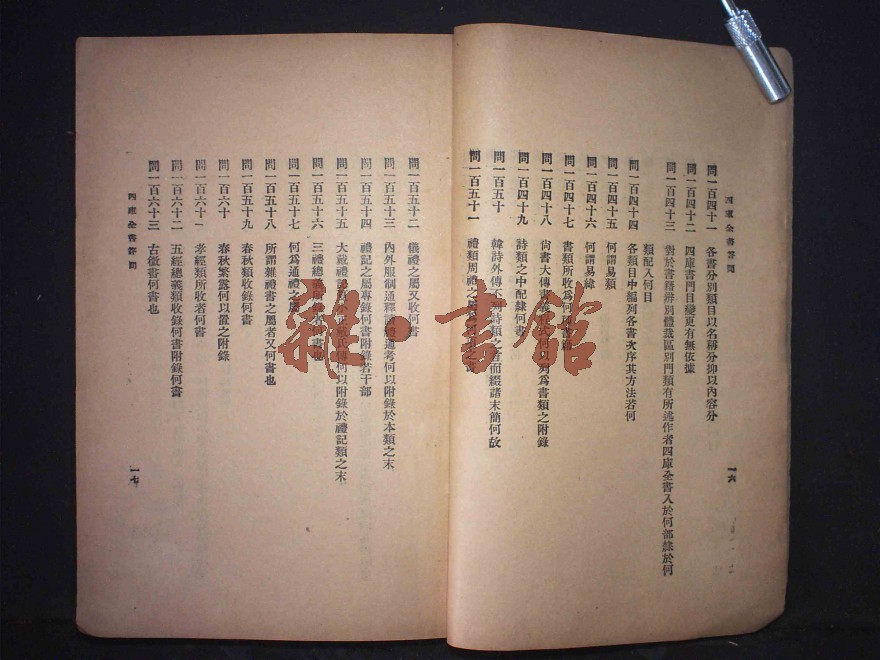 四庫全書答問
一六
問一百四十一 各書分別類目以名稱分抑以內容分
問一百四十二 四庫書門目變更有無依據
問一百四十三 對於書籍辨別體裁區別門類有所述作者四庫全書入於何部隸於何
類配入何目
問一百四十四 各類目中編列各書次序其方法若何
問一百四十五 何謂易類
問一百四十六 何謂易緯
問一百四十七 書類所收為何
問一百四十八 尚書大傳書義 式何以列為書類之附錄
問一百四十九 詩類之中配隸何書
問一百五十 韓詩外傳不列詩類之首而綴諸末簡何故
問一百五十一 禮類周禮之屬 書
問一百五十二 儀禮之屬又收何書
問一百五十三 內外服制通釋讀禮通考何以附錄於本類之末
問一百五十四 禮記之屬專錄何書附錄若干部
問一百五十五 大戴禮記夏小正戴氏傳何以附錄於禮記類之末
問一百五十六 三禮總義所 何書也
問一百五十七 何為通禮之屬
問一百五十八 所謂雜禮書之屬者又何書也
問一百五十九 春秋類收錄何書
問一百六十 春秋繁露何以置之附錄
問一百六十一 孝經類所收者何書
問一百六十二 五經總義類收錄何書附錄何書
問一百六十三 古微書何書也
四庫全書答問
一七
雜·書館